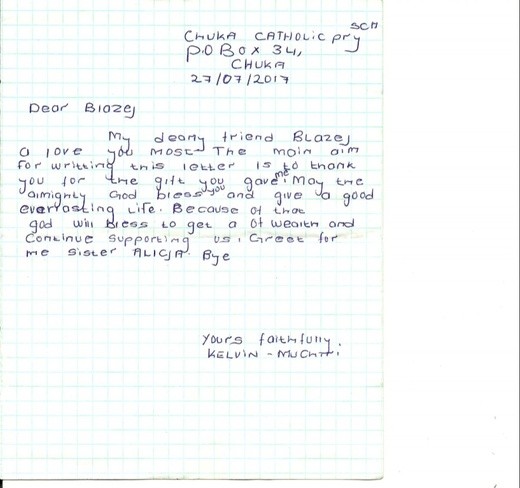 CHUKA CATHOLIC pry SCH
P.O BOX 34,
CHUKA
27/07/2017
Dear Blazej
My deany friend BLazej
a love you most The main aim
for writting this letter is to thank
you for the gift you gave me. May the
almighty God bless you and give a good
everlasting Life. Because of that
god will bless to get a of wealth and
Continue supporting us. Greet for
me sister ALICJA. Bye
Yours faithfully.
KELVIN -